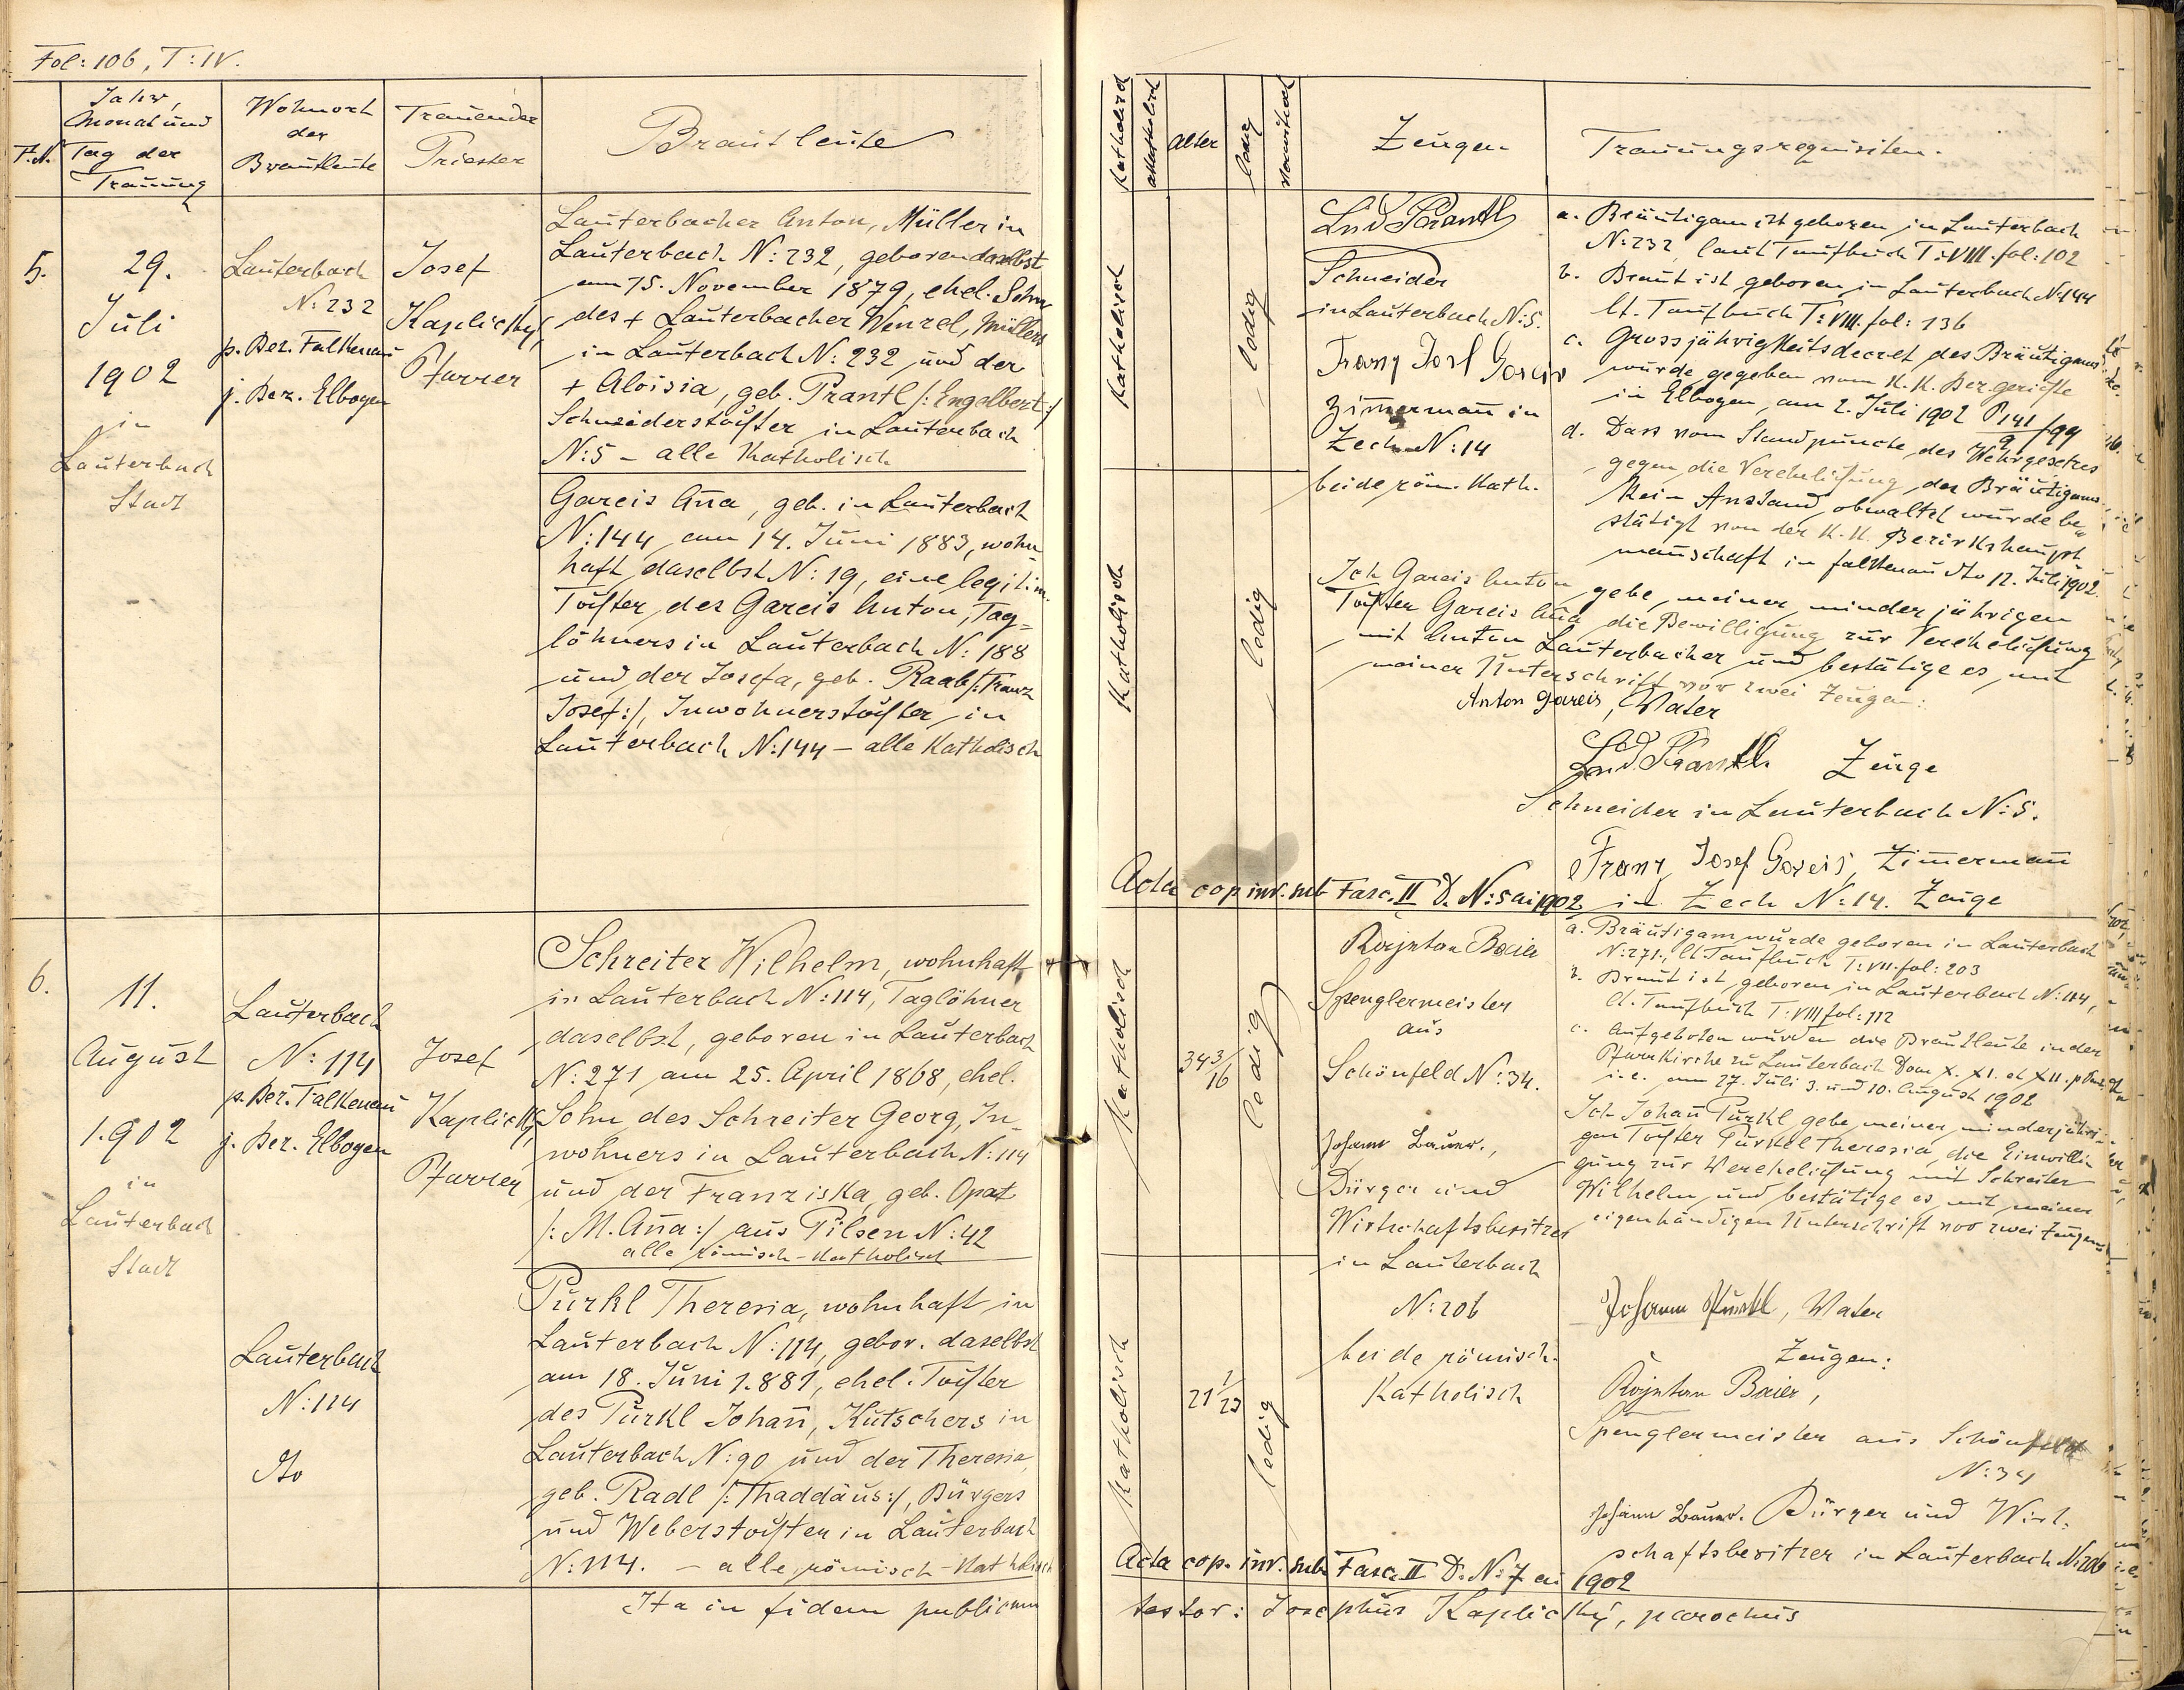 Fol: 106, T: IV.
F.N.
Jahr,
Monat und
Tag der
Trauung
Wohnort
der
Brautleute
Trauender
Priester
Brautleute
5.
29.
Juli
1902
in
Lauterbach
Stadt
Lauterbach
N: 232
p. Bez. Falkenau
j. Bez. Elbogen
Josef
Kaplický,
Pfarrer
Lauterbacher Anton, Müller in
Lauterbach N: 232, geboren daselbst
am 15. November 1879, ehel. Sohn
des + Lauterbacher Wenzel, Müllers
in Lauterbach N: 232 und der
+ Aloisia, geb. Prantl /: Engelbert :/
Schneiderstochter in Lauterbach
N: 5 – alle Katholisch
Gareis Ana, geb. in Lauterbach
N: 144 am 14. Juni 1883, wohn
haft daselbst N: 19, eine legitim.
Tochter des Gareis Anton, Tag=
löhners in Lauterbach N: 188
und der Josefa, geb. Raab /: Franz
Josef :/, Inwohnerstochter in
Lauterbach N: 144 – alle Katholisch
6.
11.
August
1902
in
Lauterbach
Stadt
Lauterbach
N: 114
p. Bez. Falkenau
j. Bez. Elbogen
Josef
Kaplický,
Pfarrer
Schreiter Wilhelm, wohnhaft
in Lauterbach N: 114, Taglöhner
daselbst, geboren in Lauterbach
N: 271 am 25. April 1868, ehel.
Sohn des Schreiter Georg, In-
wohners in Lauterbach N: 114
und der Franziska, geb. Opat
/: M. Ana :/ aus Pilsen N: 42
alle römisch-Katholisch
Lauterbach
N: 114
dto
Pürkl Theresia, wohnhaft in
Lauterbach N: 114, gebor. daselbst
am 18. Juni 1881, ehel. Tochter
des Pürkl Johan, Kutschers in
Lauterbach N: 90 und der Theresia,
geb. Radl /: Thaddäus :/, Bürgers
und Weberstochter in Lauterbach
N: 114. – alle römisch-Katholisch
Ita in fidem publicam
Katholisch
akatholisch
alter
ledig
verwitwet
Zeugen
Trauungsrequisiten.
Katholisch
ledig
Katholisch
ledig
Lnd Prantl
Schneider
in Lauterbach N: 5.
Franz Josf Gareis
Zimerman in
Zech N: 14
beide röm. Kath.
a. Bräutigam ist geboren in Lauterbach
N: 232, laut Taufbuch T: VIII. fol: 102
b. Braut ist geboren in Lauterbach N: 144
lt. Taufbuch T: VIII. fol: 136
c. Grossjährigkeitsdecret des Bräutigams
wurde gegeben vom K. K. Bez. gerichte
in Elbogen, am 2. Juli 1902 P 141/99
9
d. Dass vom Standpuncte des Wehrgesetzes
gegen die Verehelichung des Bräutigams
kein Anstand obwaltet wurde be„
stätigt von der K. K. Bezirkshaupt
manschaft in Falkenau dto 12. Juli 1902.
Ich Gareis Anton gebe, meiner minderjährigen
Tochter Gareis Ana die Bewilligung zur Verehelichung
mit Anton Lauterbacher und bestätige es mit
meiner Unterschrift vor zwei Zeugen:
Anton Gareis, Vater
Lnd. Prantl. Zeuge
Schneider in Lauterbach N: 5.
Franz Josef Gareis, Zimerman
in Zech N: 14. Zeuge
Acta cop. inv. sub Fasc. II D. N: 5 ai 1902
Katholisch
34 3/16
ledig
Katholisch
21 1/23
ledig
Baier
Spenglermeister
aus
Schönfeld N: 34.
Johann Bauer.,
Bürger und
Wirtschaftsbesitzer
in Lauterbach
N: 206
beide römisch-
Katholisch
a. Bräutigam wurde geboren in Lauterbach
N: 271., lt. Taufbuch T: VII. fol: 203
b. Braut ist geboren in Lauterbach N: 114,
lt. Taufbuch T: VIII fol: 112
c. Aufgeboten wurden die Brautleute in der
Pfarrkirche zu Lauterbach Dom X. XI. et XII. p.
i.e. am 27. Juli 3. und 10. August 1902
Ich Johan Pürkl gebe meiner minderjähri-
gen Tochter Pürkl Theresia, die Einwilli
gung zur Verehelichung mit Schreiter
Wilhelm und bestätige es mit meiner
eigenhändigen Unterschrift vor zwei Zeugen
Johann Pürkl, Vater
Zeugen:
Baier,
Spenglermeister aus Schönfeld
N: 34
Johann Bauer. Bürger und Wirt:
schaftsbesitzer in Lauterbach N: 206
Acta cop. inv. sub Fasc. II D. N: 7 ai 1902
testor: Josephus Kaplický, parochus